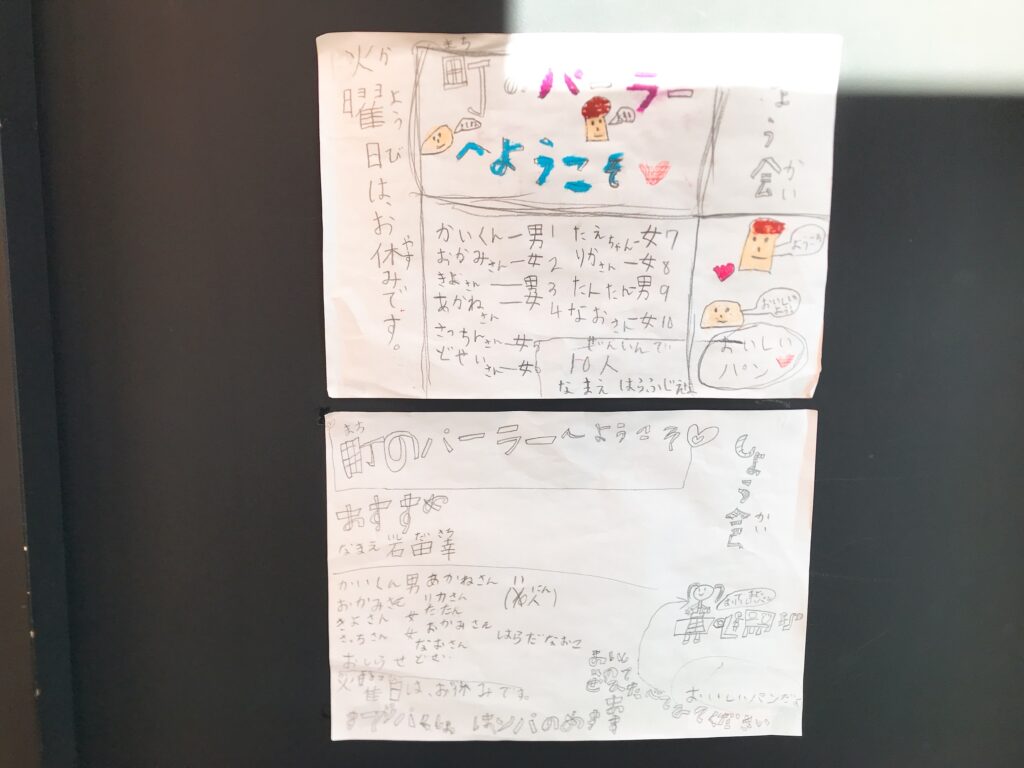 火曜日は、お休みです。
かようび
やす
まち
町のパーラー
へようこそ
ょう会
かい
かいくんー男1
おかみさんー女2
きよさんー男3
あかねさんー女4
さっちんさんー女5
どせいさんー女6
たえちゃんー女7
りかさんー女8
たんたんー男9
なおさんー女10
ぜんいんで
10人
なまえ
ようこそ
おいしいよ
おいしい
パン
まち
町のパーラーへようこそ
しょう会
かい
おすすめ
なまえ
かいくん 男 あかねさん
おかみさん リカさん
きよさん 女 たたん
さっちさん 女 おかみさん
なおさん
にん
人
はらだなおこ
おしらせ
火曜日は、お休みです。
おいしいパンだよ
たべてみてください